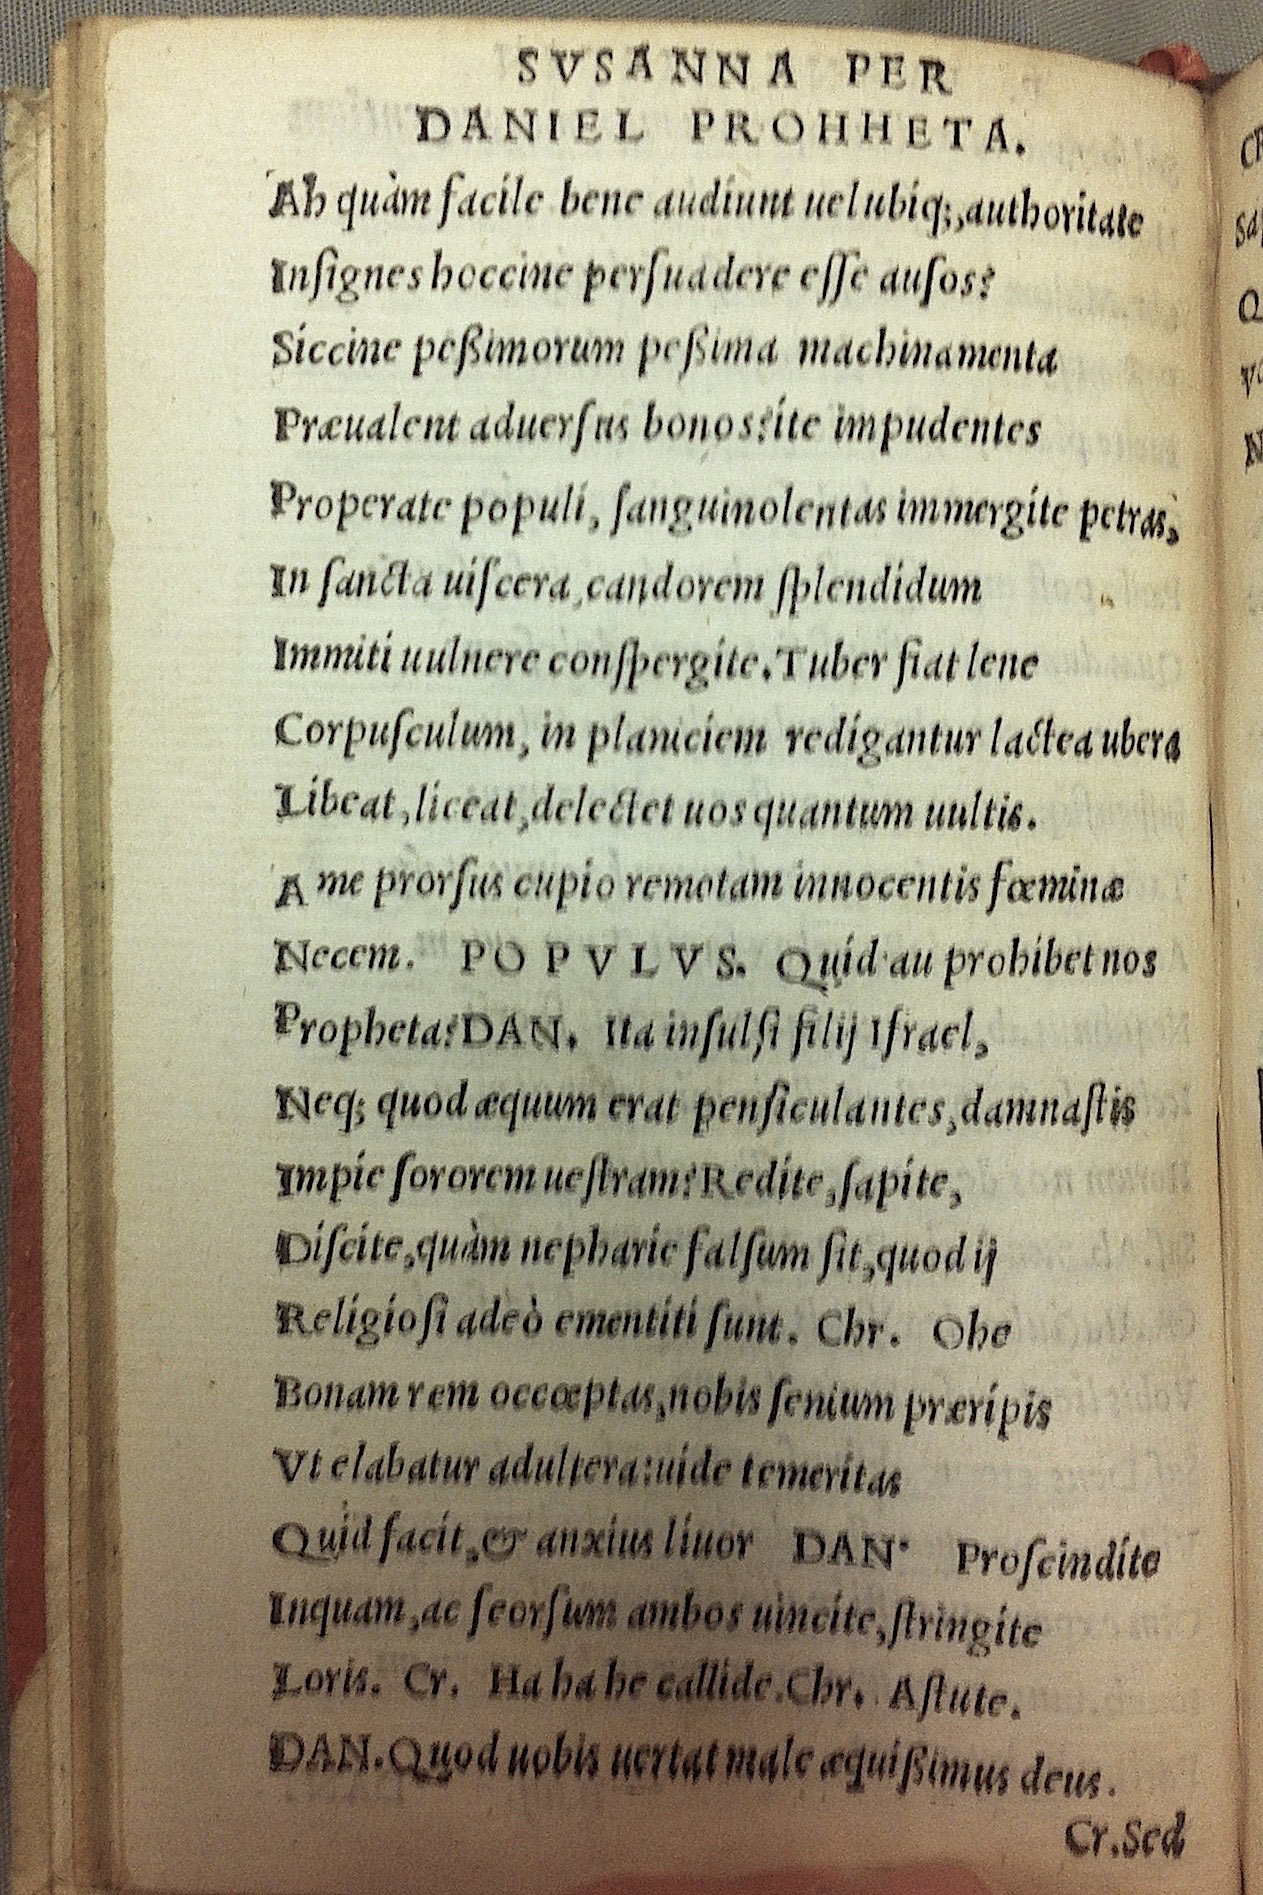 SVSANNA PER
DANIEL PROHHETA.
Ah quàm facile bene audiunt uel ubiq;,authoritate
Inſignes hoccine perſuadere eſſe auſos?
Siccine peßimorum peßima machinamenta
Præualent aduerſus bonos?ite impudentes
Properate populi, ſanguinolentas immergite petras,
In ſancta uiſcera,candorem ſplendidum
Immiti uulnere conſpergite.Tuber fiat lene
Corpuſculum, in planiciem redigantur lactea ubera
Libeat,liceat,delectet uos quantum uultis.
A me prorſus cupio remotam innocentis fœminæ
Necem. POPVLVS. Quid au prohibet nos
Propheta?DAN. Ita inſulſi filij Iſrael,
Neq; quod æquum erat penſiculantes,damnaſtis
Impie ſororem ueſtram?Redite,ſapite,
Diſcite,quàm nepharie falſum ſit,quod ij
Religioſi adeò ementiti ſunt. Chr. Ohe
Bonam rem occœptas,nobis ſenium præripis
Vt elabatur adultera:uide temeritas
Quid facit,& anxius liuor DAN· Proſcindite
Inquam,ac ſeorſum ambos uincite,ſtringite
Loris. Cr. Ha ha he callide.Chr. Aſtute.
DAN.Quod uobis uertat male æquißimus deus.
Cr.Sed